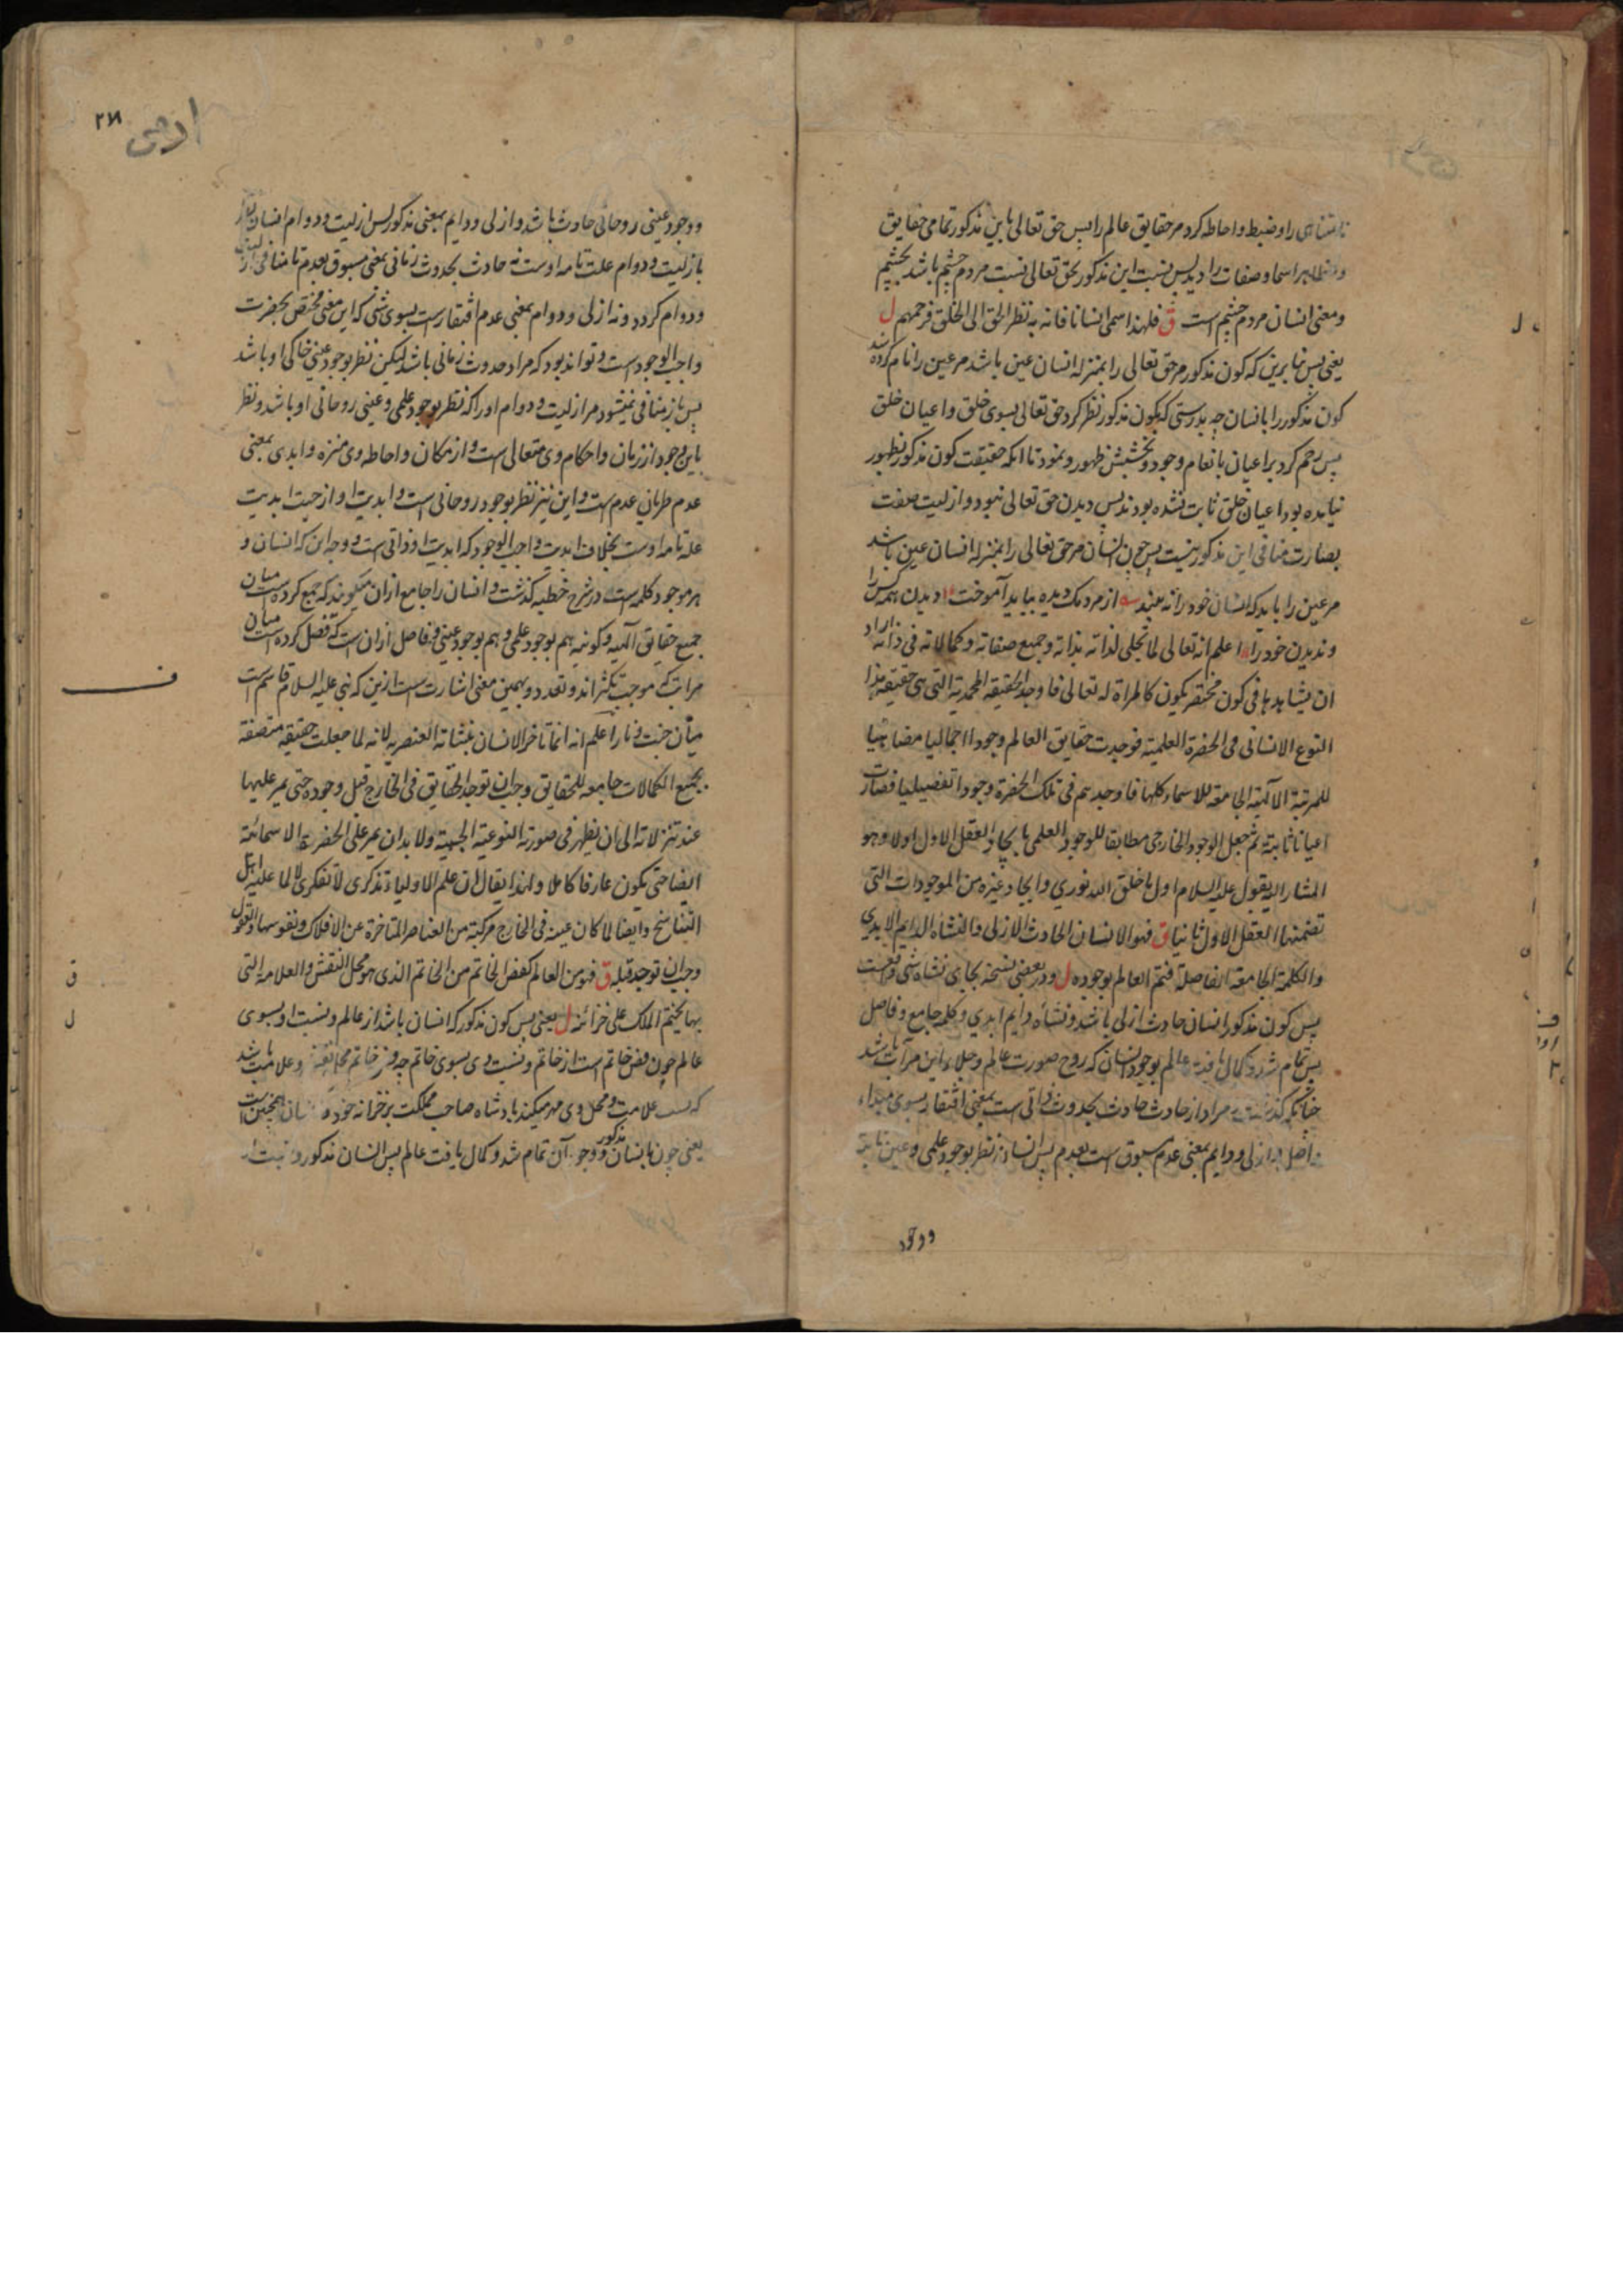 نامتناهی را و ضبط و احاطه کرد مر حقایق عالم را پس حق تعالی باین مذکور تمامی حقایق
و مظاهر اسما و صفات را دید پس نسبت این مذکور بحق تعالی نسبت مردم چشم باشد بچشم
و معنی انسان مردم چشم است ق فلهذا سمی انسانا فانه به نظر الحق الی الخلق فرحمهم ل
یعنی پس بنابرین که کون مذکور مر حق تعالی را بمنزله انسان عین باشد مر عین را نام کرده شد
کون مذکور را بانسان چه بدرستی که بکون مذکور نظر کرد حق تعالی بسوی خلق و اعیان خلق
پس رحم کرد بر اعیان بانعام وجود و بخشش ظهور و نمود تا آنکه حقیقت کون مذکور بظهور
نیامده بود اعیان خلق ثابت نشده بودند پس دیدن حق تعالی نبود و ازلیت صفت
بصارت منافی این مذکور نیست پس چون انسان مر حق تعالی را بمنزله انسان عین باشد
مر عین را باید که انسان خود را نه بیند از مردمک دیده بباید آموخت دیدن همه کس را
و ندیدن خود را اعلم انه تعالی لما تجلی لذاته بذاته و جمیع صفاته و کمالاته فی ذاته اراد
ان یشاهدها فی کون مختصر یکون کالمراة له تعالی فاوجد الحقیقه المحمدیة التی هی حقیقة هذا
النوع الانسانی فی الحضرة العلمیة فوجدت حقایق العالم وجودا اجمالیا مضاهیا
للمرتبة الالهیة الجامعة للاسماء کلها فاوجدهم فی تلک الحضرة وجودا تفصیلیا فصارت
اعیانا ثابتة ثم جعل الوجود الخارجی مطابقا للوجود العلمی بایجاد العقل الاول اولا و هو
المشار الیه بقول علیه السلام اول ما خلق الله نوری و ایجاد غیره من الموجودات التی
تضمنها العقل الاول ثانیا ق فهو الانسان الحادث الازلی و النشاه الدایم الابدی
و الکلمة الجامعة الفاصلة فتم العالم بوجوده ل و در بعضی نسخه بجای نشاه شی واقعست
پس کون مذکور انسان حادث ازلی باشد و نشاه دایم ابدی و کلمه جامع و فاصل
پس تمام شد و کمال یافت عالم بوجود انسان که روح صورت عالم و جلاء این مرآت باشد
چنانکه گذشت مراد از حادث حادث بحدوث ذاتی است بمعنی افتقار بسوی مبداء
ازلی و دایم بمعنی عدم مسبوق است بعدم پس انسان نظر بوجود علمی و عین ثابته
ووجود
۲۷۱
و وجود عینی روحانی حادث باشد و ازلی و دایم بمعنی مذکور پس ازلیت و دوام انسان
بازلیت و دوام علت تامه اوست نه حادث بحدوث زمانی بمعنی مسبوق بعدم تا منافی ازلیت
و دوام گردد و نه ازلی و دوام بمعنی عدم افتقارست بسوی شی که این معنی مختص بحضرت
واجب الوجود است و تواند بود که مراد حدوث زمانی باشد لیکن نظر بوجود عینی خاکی او باشد
پس باز منافی نمیشود مر ازلیت و دوام او را که نظر بوجود علمی و عینی روحانی او باشد و نظر
باین وجود از زمان و احکام وی متعالی است و از مکان و احاطه وی منزه و ابدی بمعنی
عدم طریان عدم است و این نیز نظر بوجود روحانی است و ابدیت او از حیث ابدیت
علة تامه اوست بخلاف ابدیت واجب الوجود که ابدیت او ذاتی است و وجه این که انسان و
هر موجود کلمه است در شرح خطبه گذشت و انسان را جامع ازان میگویند که جمع کرده است میان
جمیع حقایق الهیه و کونیه هم بوجود علمی و هم بوجود عینی و فاصل ازان است که فصل کرده است میان
مراتب که موجب تکثراند و تعدد و بهمین معنی اشارت ست ازین که نبی علیه السلام قاسم است
میان جنت و نار اعلم انه انما تاخر الانسان بنشاته العنصریه لانه لما جعلت حقیقته متصفة
بجمیع الکمالات جامعه للحقایق وجب ان توجد الحقایق فی الخارج قبل وجوده حتی یمر علیها
عند تنزلاته الی ان یظهر فی صورته النوعیة الحسیة و لا بد ان یمر علی الحضرت الاسمائیة
ایضا حتی یکون عارفا کاملا و لهذا یقال ان علم الاولیاء تذکری لا تفکری لا لما علیه اهل
التناسخ و ایضا لما کان عینه فی الخارج مرکبة من العناصر المتاخرة عن الافلاک و نفوسها و عقولها
وجب ان توجد قبله ق فهو من العالم کفص الخاتم من الخاتم الذی هو محل النقش و العلامة التی
بها یختم الملک علی خزائنه ل یعنی پس کون مذکور که انسان باشد از عالم و نسبت او بسوی
عالم چون فص خاتم است از خاتم و نسبت وی بسوی خاتم چه فص خاتم محل نقش و علامت باشد
که بسبب علامت و محل وی مهر میکند پادشاه صاحب مملکت بر خزانه خود انسان همچنین است
یعنی چون بانسان مذکور و وجود آن تمام شد و کمال یافت عالم پس انسان مذکور و نسبت او
ق
ل